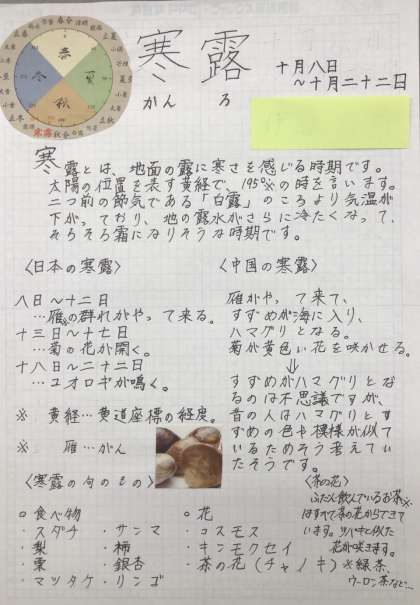 春
夏
秋
冬
春分
秋分
寒露
白露
寒露
かん ろ
十月八日
～十月二十二日
寒露とは、地面の露に寒さを感じる時期です。
太陽の位置を表す黄経で、195°※の時を言います。
二つ前の節気である「白露」のころより気温が
下がっており、地の露水がさらに冷たくなって、
そろそろ霜になりそうな時期です。
〈日本の寒露〉
八日～十二日
…雁※の群れがやって来る。
十三日～十七日
…菊の花が開く。
十八日～二十二日
…コオロギが鳴く。
※ 黄経…黄道座標の経度。
※ 雁…がん
〈中国の寒露〉
雁がやって来て、
すずめが海に入り、
ハマグリとなる。
菊が黄色い花を咲かせる。
↓
すずめがハマグリとな
るのは不思議ですが、
昔の人はハマグリとす
ずめの色や模様が似て
いるためそう考えてい
たそうです。
〈寒露の旬のもの〉
○食べ物
・スダチ ・サンマ
・梨 ・柿
・栗 ・銀杏
・マツタケ ・リンゴ
○花
・コスモス
・キンモクセイ
・茶の花（チャノキ）
〈茶の花〉
ふだん飲んでいるお茶※
はすべて茶の花からできて
います。ツバキと似た
花が咲きます。
※緑茶、
ウーロン茶など…